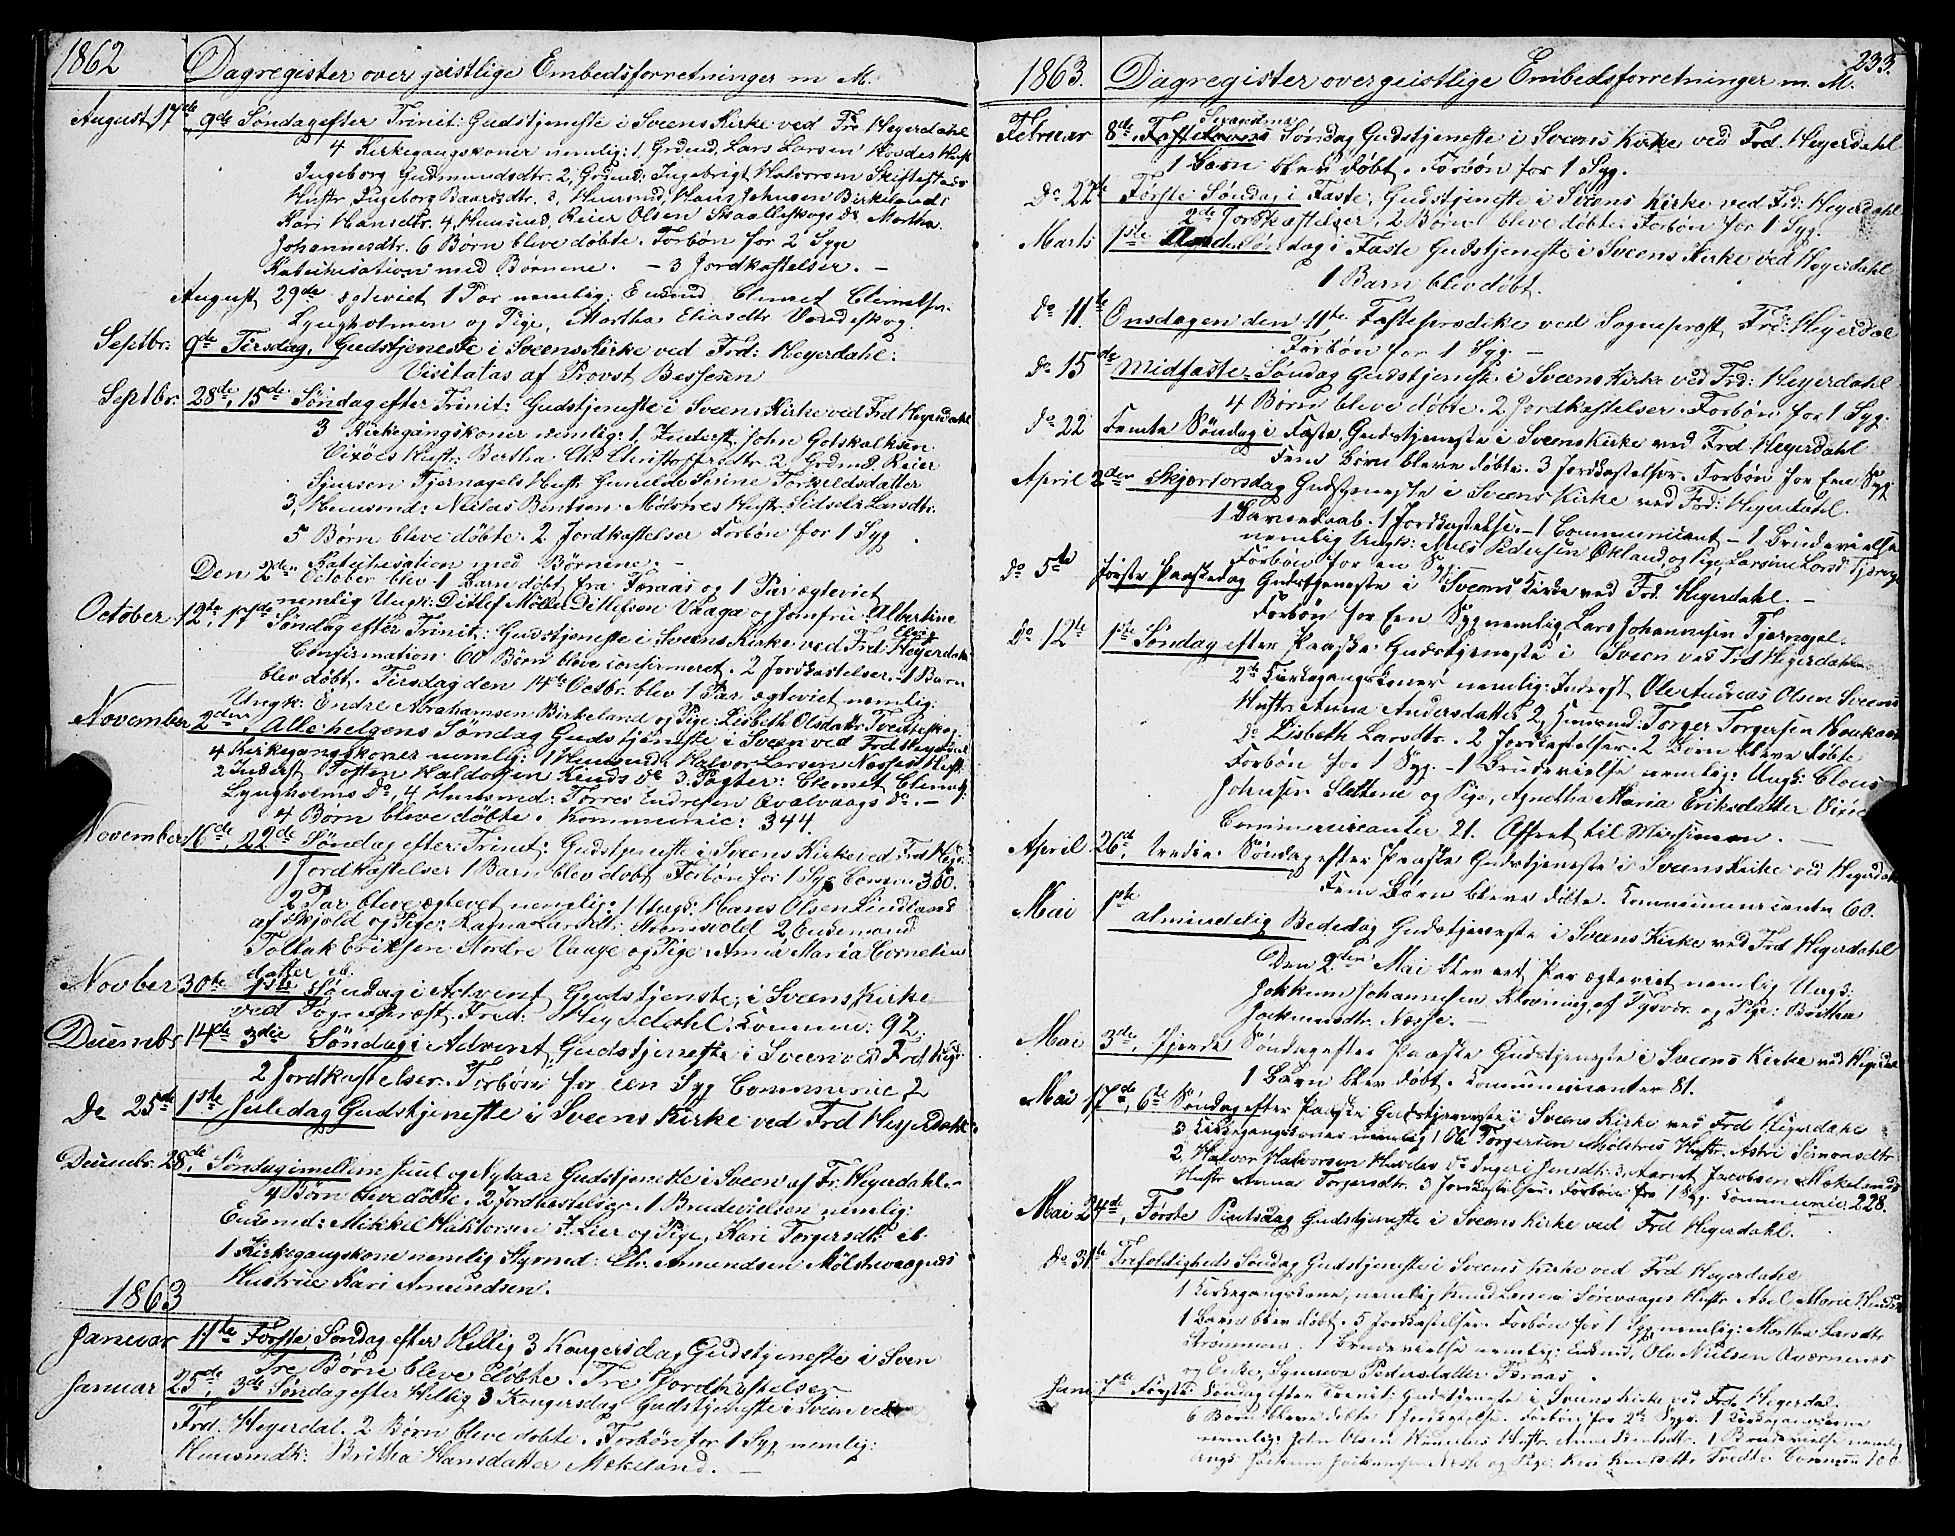 1862
Dagregister over geistlige Embedsforretninger m M.
August 17de 9de Søndag efter Trinit: Gudstjeneste i Sveens Kirke ved Fr Heyerdahl
4 Kirkegangskoner nemlig: 1, Grdmd, Lars Larsen Hovdes Hust
Ingeborg Gudmundsdtr. 2, Grdmd: Ingebrigt Halvorsen Skiftestads
Hustr Ingeborg Baardsdtr. 3, Huusmd, Hans Johnsen Birkelands
Kari Hansdtr. 4, Huusmd, Reier Olsen Skaalleskogs do Martha
Johannesdtr. 6 Børn bleve døbte. Forbøn for 2 Syge
Katechisation med Børnene. — 3 Jordkastelser. —
August 29de ægteviet 1 Par nemlig: Clemet Clemetsen
Lyngholmen og Pige, Martha Eliasdtr
Septbr. 9de Tirsdag, Gudstjeneste i Sveens Kirke ved Frd: Heyerdahl:
Visitatas af Provst
Septbr. 28de, 15de Søndag efter Trinit: Gudstjeneste i Sveens Kirke ved Frd Heyerdahl
3 Kirkegangskoner nemlig: 1, Inderst, John Gotskalksen
Vixøes Hustr: Bertha Christoffersdtr. 2 Grdmd. Reier
Sjursen Tjernagels Hust Gunelde Serine Torkeldsdatter
3, Huusmd: Nielas Bentsen Mølstres Hustr. Sidsela Larsdtr.
5 Børn bleve døbte. 2 Jordkastelser Forbøn for 1 Syg
Katechisation med Børnene. —
Den 2den October blev 1 Barn døbt fra Foraas og 1 Par ægteviet
nemlig Ungk: Ditlef Møller Ditlefsen Vaaga og Jomfru: Albertine
October 12te, 17de Søndag efter Trinit: Gudstjeneste i Sveens Kirke ved Frd Heyerdahl
Confirmation 60 Børn bleve confirmeret. 2 Jordkastelser. 1 Barn
blev døbt. Tirsdag den 14de Octbr. blev 1 Par ægteviet nemlig:
Ungk: Endre Abrahamsen Birkeland og Pige: Lisbeth Olsdatr
November 2den, Alle helgens Søndag Gudstjeneste i Sveen ved Frd Heyerdahl
4 Kirkegangskoner nemlig: 1 Huusmd: Halvor Larsen Hust:
2 Inderst Tosten Haldorsen do 3. Pagter: Clemet Clemets:
Lyngholms do, 4 Huusmd: Torres Endresen Qvalvaags do. —
4 Børn bleve døbte. Kommunic: 344.
November 16de, 22de Søndag efter Trinit: Gudstjeneste i Sveens Kirke ved Frd Heyr:
1 Jordkastelser 1 Barn blev døbt Forbøn for 1 Syg Commn 360.
2 Par bleve ægtevet nemlig: 1 Ungk. Hans Olsen Lindland
af Skjold og Pige: 2
Toltak Eriksen Nordre Vaage og Pige Anna Maria Cornelius
datter ib.
Novber 30te 1ste Søndag i Advent, Gudstjenste i Sveens Kirke
ved Sognepræst, Fred: Heyerdahl. Commu: 92
Decembr 14de 3die Søndag i Advent Gudstjeneste i Sveen ved Frd Heyr
2 Jordkastelser. Forbøn for een Syg Communic 2
Do 25de 1ste Juledag Gudstjeneste i Sveens Kirke ved Frd Heyerdahl:
Decembr. 28de, Søndag imellem Juul og Nytaar Gudstjeneste i Sveen af Fr. Heyerdahl.
4 Børn bleve døbte. 2 Jordkastelser. 1 Brudevielsen nemlig:
Mikkel og Pige, Kari Torgersdtr. ib.
1 Kirkegangskone nemlig Styrmd: Chr. Amundsen Mølstrevaagens
Hustrue Kari Amundsen.
1863
Januar 11te Første Søndag efter Hellig 3 Kongersdag Gudstjeneste i Sveen
Tre Børn bleve døbte. Tre Jordkastelser
Januar 25de, 3de Søndag efter Hellig 3 Kongersdag Gudstjeneste i Sveen ved
Frd. Heyerdal. 2 Børn bleve døbte. Forbøn for 1 Syg nemlig:
Huusmdk: Britha Hansdatter Mokeland. —
233.
1863. Dagregister over geistlige Embedsforretninger m. M.
Februar 8de, Søndag Gudstjeneste i Sveens Kirke ved Frd. Heyerdahl
1 Barn blev døbt. Forbøn for 1 Syg.
Do 22de Første Søndag i Faste, Gudstjeneste i Sveens Kirke ved Frd: Heyerdahl
2de Jordkastelser, 2 Børn bleve døbte. Forbøn for 1 Syg.
Marts 1ste Anden Søndag i Faste Gudstjeneste i Sveens Kirke ved Heyerdahl
1 Barn blev døbt.
Do 11te Onsdagen den 11te Fasteprædike ved Sognepræst, Frd: Heyerdal
Forbøn for 1 Syg. —
Do 15de Midfaste-Søndag Gudstjeneste i Sveens Kirke ved Frd: Heyerdahl
4 Børn bleve døbte. 2 Jordkastelser. Forbøn for 1 Syg.
Do 22 Femte Søndag i Faste, Gudstjeneste i Sveens Kirke ved Frd Heyerdahl
Fem Børn bleve døbte. 3 Jordkastelser. Forbøn for Een Syg
April 2den Skjærtorsdag Gudstjeneste i Sveens Kirke ved Frd: Heyerdahl.
1 Barnedaab. 1 Jordkastelse. — 1 Communicant — 1 Brudevielse
nemlig Ungk: Niels Pedersen Økland og Pige, Larsine Larsd: Tjernagel
Forbøn for en Syg
Do 5te Første Paaskedag Gudstjeneste i Sveens Kirke ved Frd. Heyerdahl. —
Forbøn for Een Syg nemlig, Lars Johannesen Tjernagel.
Do 12te 1ste Søndag efter Paaske Gudstjeneste i Sveen ved Frd Heyerdahl
2de Kirkegangskoner nemlig: Inderst Ole Andreas Olsen Sveens
Hustr Anna Andersdatter 2, Huusmd: Torger Torgersen Houkaas
do Lisbeth Larsdtr. 2 Jordkastelser. 2 Børn bleve døbte
Forbøn for 1 Syg. — 1 Brudevielse nemlig: Ungk: Claus
Johnsen Slettene og Pige, Agnetha Maria Eriksdatter Vixøe
Communicanter 21. Offret til Missionen. —
April 26de, tredie Søndag efter Paaske Gudstjeneste i Sveens Kirke ved Heyerdahl
Fem Børn bleve døbte. Communicanter 60.
Mai 1ste almindelig Bededag Gudstjeneste i Sveens Kirke ved Frd Heyerdahl
Den 2den Mai blev et Par ægteviet nemlig Ungk:
Jokkum Johannesen af Tysvær og Pige: Britha
Jochumsdtr. Næsse. —
Mai 3de, fjerde Søndag efter Paaske Gudstjeneste i Sveens Kirke ved Heyerdal
1 Barn blev døbt. Communicanter 81.
Mai 17de, 6te Søndag efter Paaske Gudstjeneste i Sveens Kirke ved Frd Heyerdahl
3 Kirkegangskoner nemlig 1 Ole Torgersen Mølstres Hustr. Astri Simonsdtr
2 Halvor Halvorsen Hovdes do Inger Jensdtr. 3, Jacobsen Mokelands
Hustr Anna Torgersdtr. 3 Jordkastelser. Forbøn for 1 Syg. Communic. 228.
Mai 24de, Første Pintsdag Gudstjeneste i Sveens Kirke ved Frd Heyerdahl.
Do 31te Trefoldigheds Søndag Gudstjeneste i Sveens Kirke ved Frd Heyerdahl
1 Kirkegangskone, nemlig Knud Larsen Hustr Abel Marie
1 Barn blev døbt. 5 Jordkastelser. Forbøn for 1 Syg nemlig: Martha Larsdtr
Strømmen. 1 Brudevielse nemlig: Enkmd. Ole Nielsen
og Enke, Pedersdatter Foraas.
Juni 7de Første Søndag efter Trinit: Gudstjeneste i Sveens Kirke ved Frd Heyerdal.
6 Børn bleve døbte 1 Jordkastelse. Forbøn for 2de Syge. 1 Kirkegangskone
nemlig: John Olsen Hustr. Anna 1 Brudevielse nemlig
Ungk Jochum og Pige Commun 100